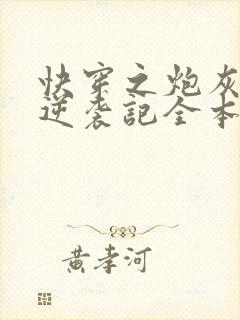 快穿之炮灰
逆袭記全本
黄孝河